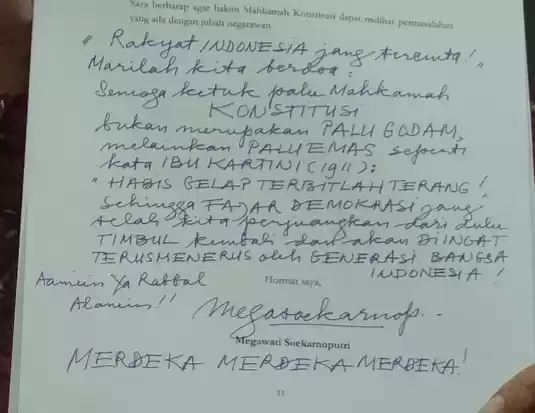 Saya berharap agar hakim Mahkamah Konstitusi dapat melihat permasalahan
yang ada dengan jubah negarawan.
" Rakyat INDONESIA jang tercinta! "
Marilah kita berdoa :
Semoga ketuk palu Mahkamah
KONSTITUSI
bukan merupakan PALU GODAM,
melainkan PALU EMAS seperti
kata IBU KARTINI (1911) :
" HABIS GELAP TERBITLAH TERANG !
Sehingga FAJAR DEMOKRASI jang
telah kita perjuangkan dari dulu
TIMBUL kembali dan akan DIINGAT
TERUSMENERUS oleh GENERASI BANGSA
INDONESIA !
Aamiin Ya Rabbal
Alamiin !!
Hormat saya,
Megasoekarnop..
Megawati Soekarnoputri
MERDEKA MERDEKA MERDEKA !
11